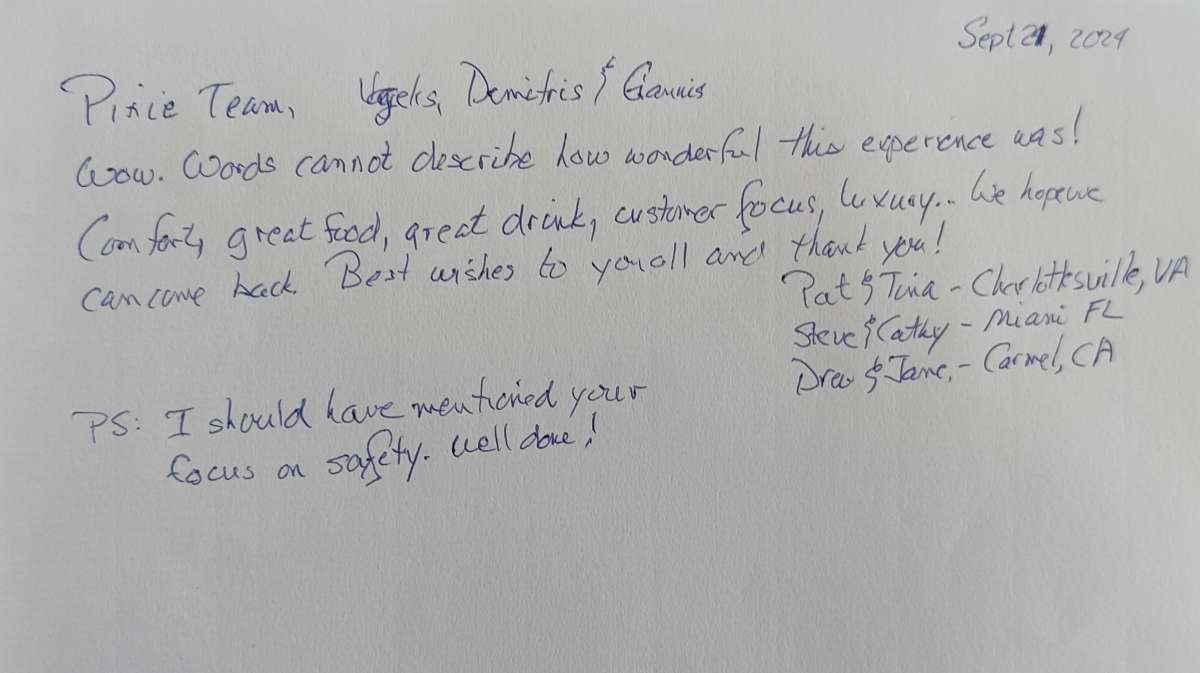 Sept 21, 2024
Pixie Team, Demitris & Giannis
Wow. Words cannot describe how wonderful this experience was!
Comfort, great food, great drink, customer focus, luxury... We hope we
can come back. Best wishes to you all and thank you!
Pat & Tina - Charlottesville, VA
Steve & Cathy - Miami FL
Drew & Jane, - Carmel, CA
PS: I should have mentioned your
focus on safety. Well done!